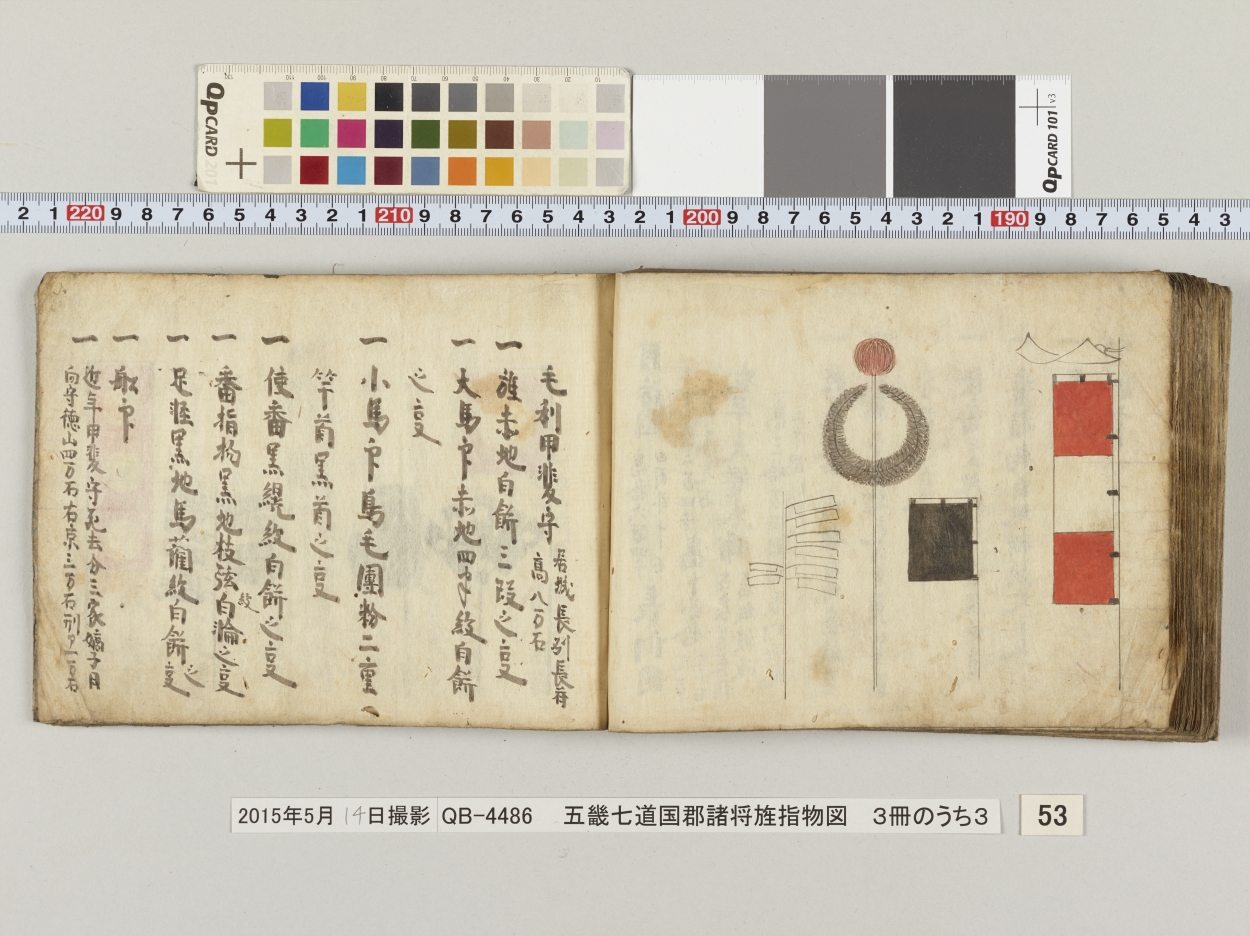 QPCARD 201
QPCARD 101 v3
2 1 220 9 8 7 6 5 4 3 2 1 210 9 8 7 6 5 4 3 2 1 200 9 8 7 6 5 4 3 2 1 190 9 8 7 6 5 4 3
毛利甲斐守
居城長刕長府
高八万石
一 旌赤地白餅三段之
一 大馬印赤地四半紋白餅
之
一 小馬印鳥毛團粉二重
竿
一 使番黒縨紋白餅之
一 番指物黒地枝弦白
紋
一 足軽黒地馬藺紋白餅之
一 舩印
一 近年甲斐守死去分三家嫡子日
向守徳山四万石右京三万石刑 一万石
2015年5月14日撮影 QB-4486 五畿七道国郡諸将旌指物図 3冊のうち3
53